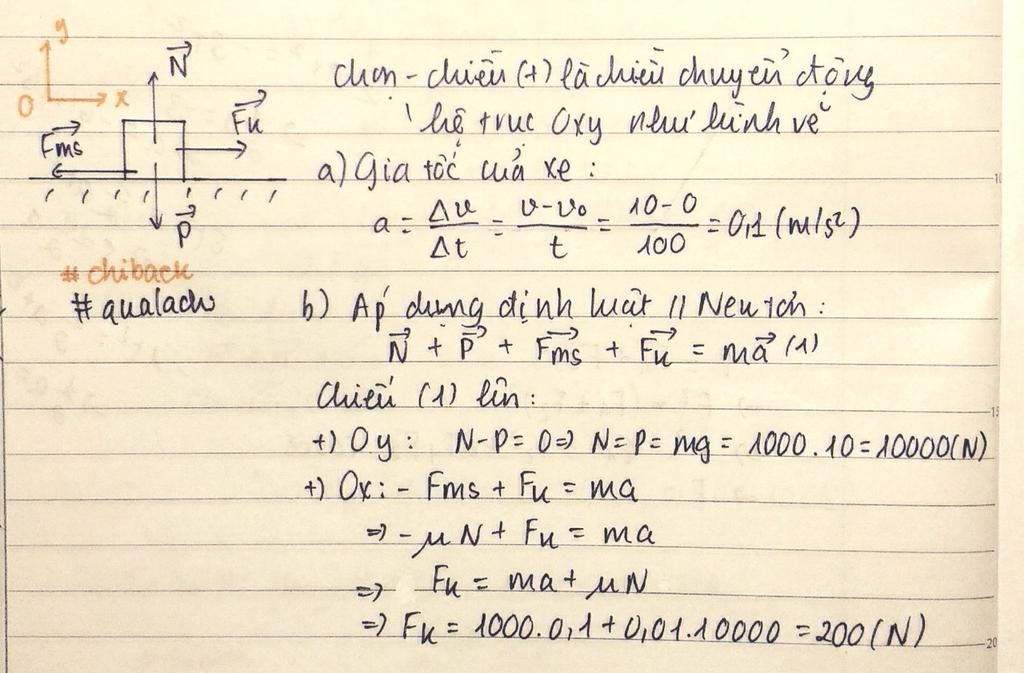 y
O
x
N⃗
F⃗k
F⃗ms
P⃗
Chọn - chiều (+) là chiều chuyển động
hệ trục Oxy như hình vẽ
a) Gia tốc của xe :
a = Δv/Δt = v-v₀/t = 10-0/100 = 0,1 (m/s²)
#chiback
#qualach
b) Áp dụng định luật II Newton :
N⃗ + P⃗ + F⃗ms + F⃗k = ma⃗ (1)
Chiếu (1) lên :
+) Oy : N-P = 0 => N = P = mg = 1000.10 = 10000(N)
+) Ox : - Fms + Fk = ma
=> -μN + Fk = ma
=> Fk = ma + μN
=> Fk = 1000.0,1 + 0,01.10000 = 200 (N)
10
15
20